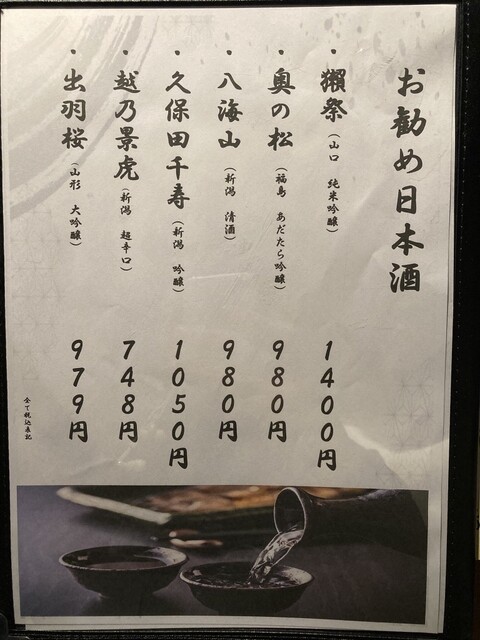 お勧め日本酒
・獺祭（山口 純米吟醸） 1400円
・奥の松（福島 あだたら吟醸） 980円
・八海山（新潟 清酒） 980円
・久保田千寿（新潟 吟醸） 1050円
・越乃景虎（新潟 超辛口） 748円
・出羽桜（山形 大吟醸） 979円
全て税込表記